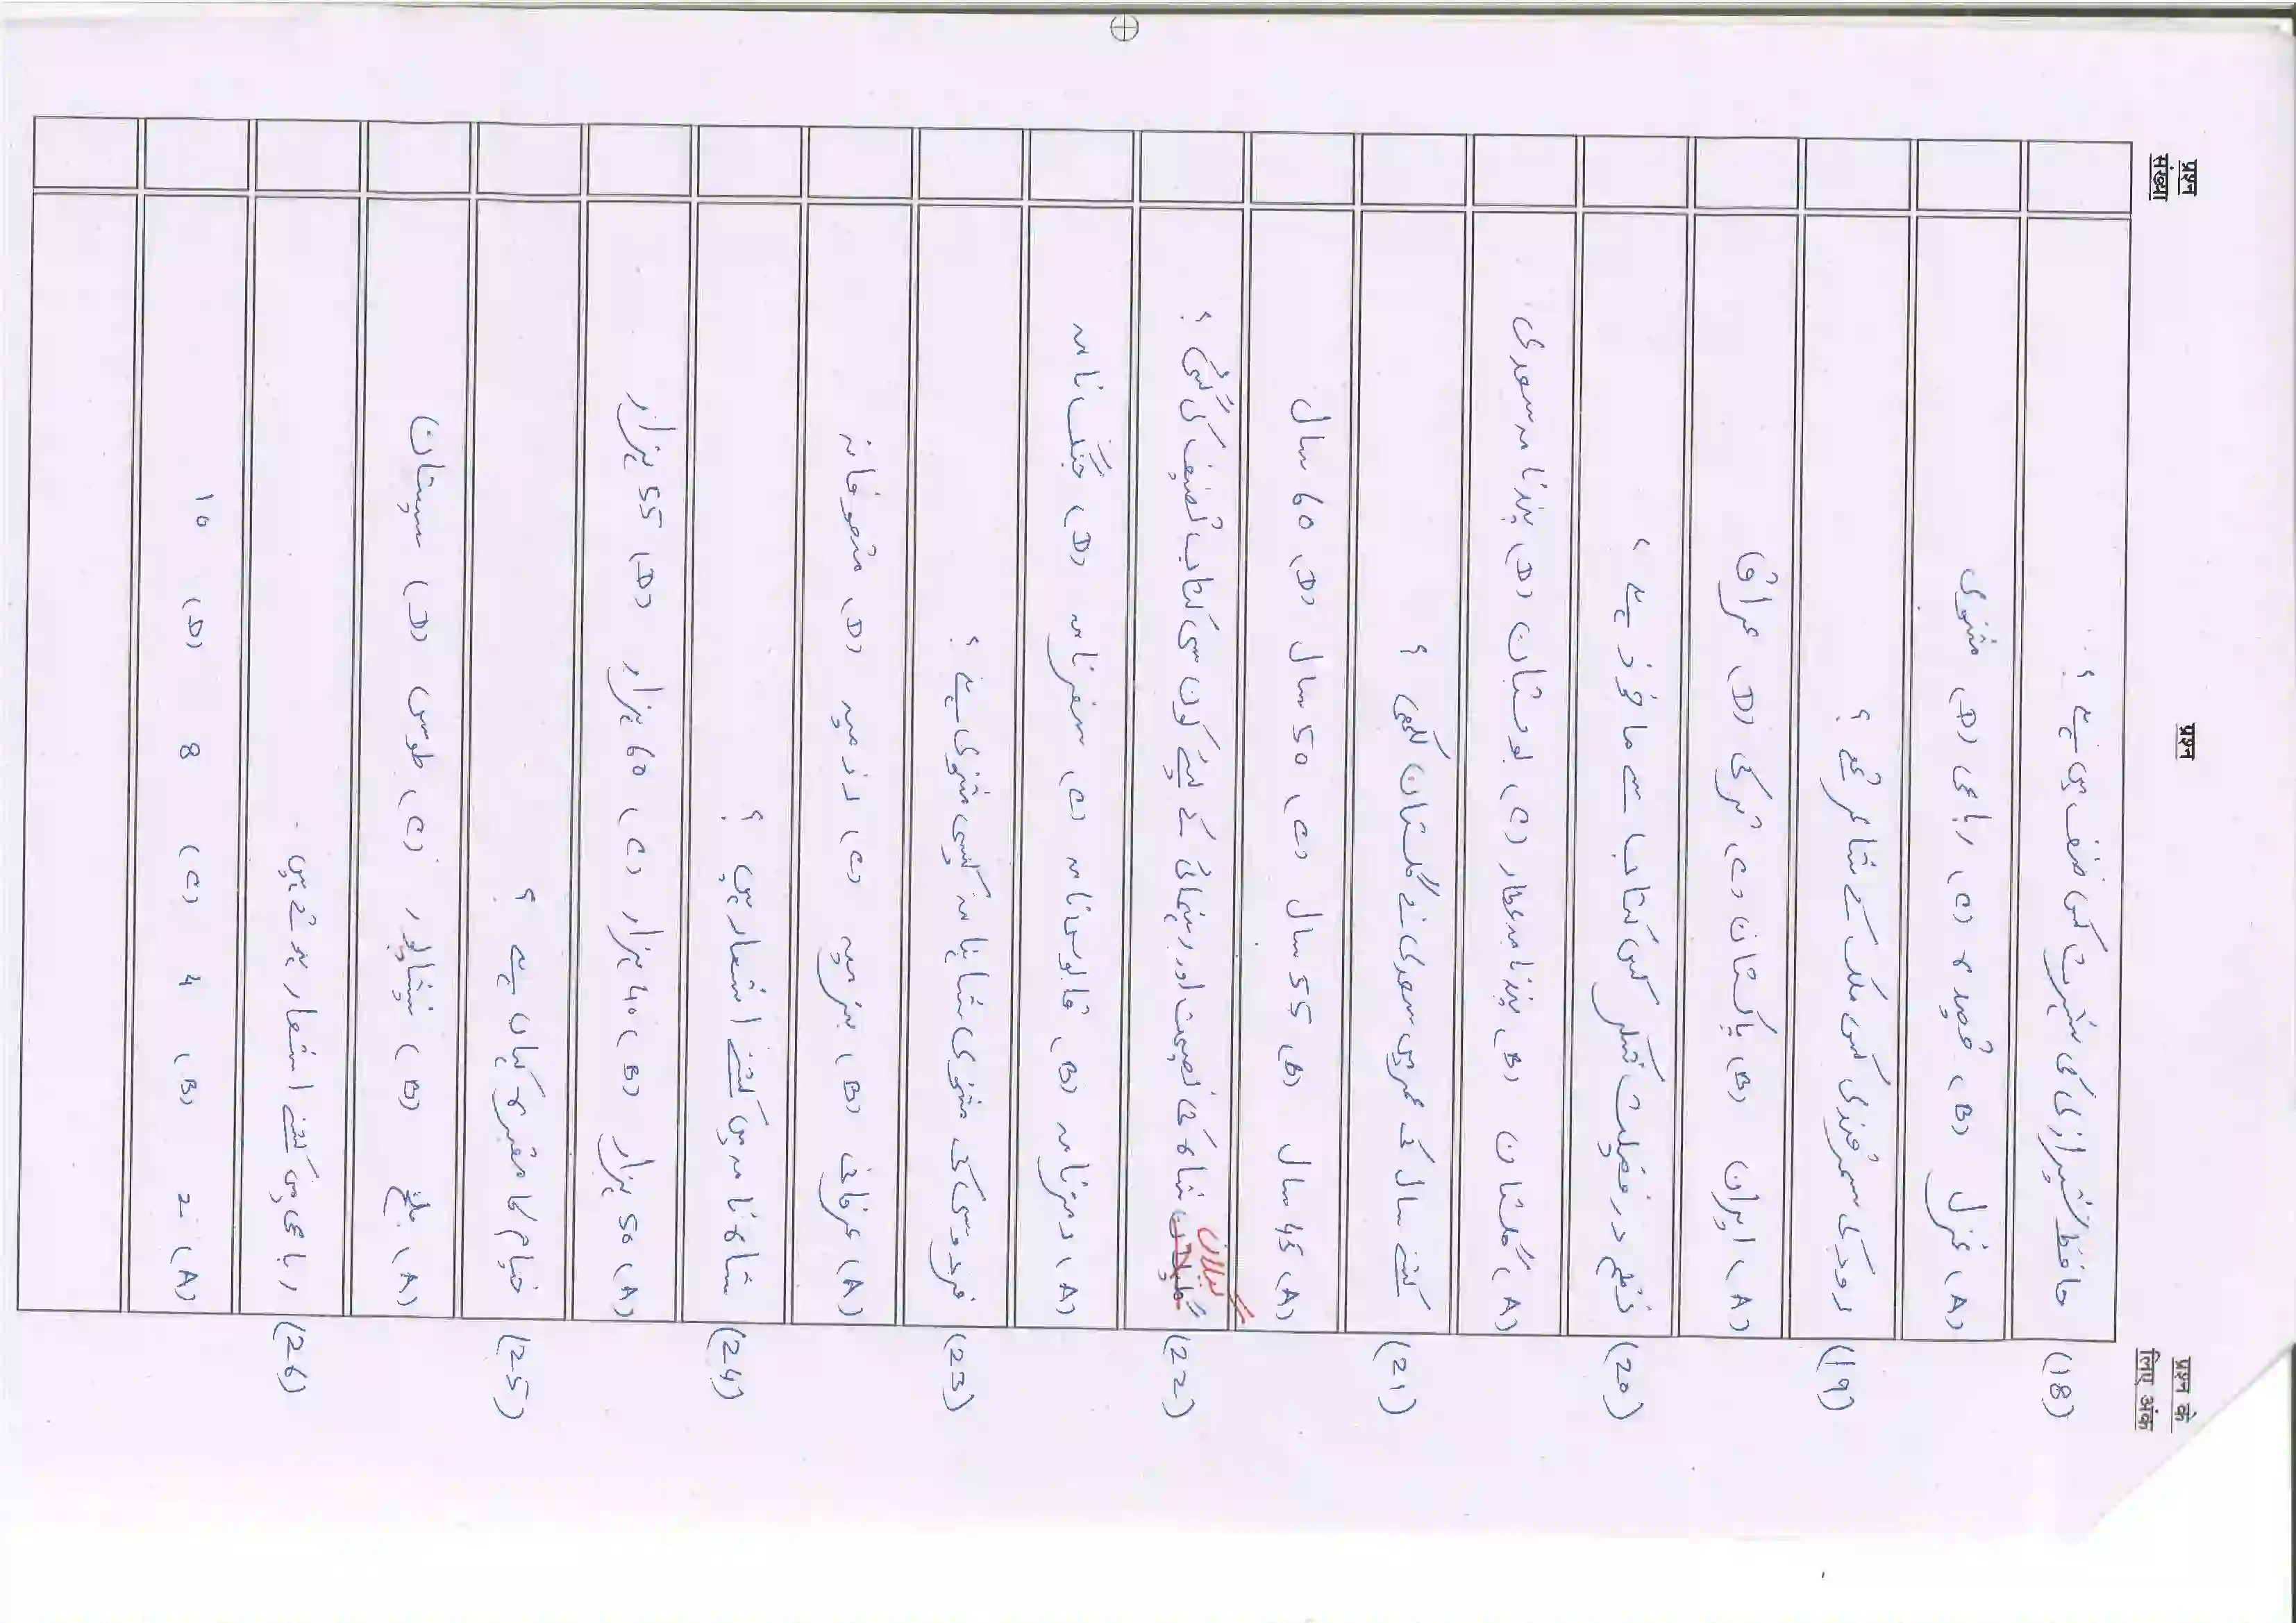 प्रश्न संख्या प्रश्न प्रश्न के लिए अंक
(18) حافظ شیرازی کی شہرت کس صنف میں ہے ؟
(A) غزل (B) قصیدہ (C) رباعی (D) مثنوی
(19) رودکی سمرقندی کس ملک کے شاعر تھے ؟
(A) ایران (B) پاکستان (C) ترکی (D) عراق
(20) قطع در فضیلت شکر کس کتاب سے ماخوذ ہے ؟
(A) گلستان (B) پندنامہ عطار (C) بوستان (D) پندنامہ سعدی
(21) کتنے سال کے عمر میں سعدی نے گلستان لکھی ؟
(A) 45 سال (B) 55 سال (C) 50 سال (D) 60 سال
(22) گیلان شاہ کی نصیحت اور رہنمائی کے لیے کون سی کتاب تصنیف کی گئی ؟
(A) رمزنامہ (B) قابوس نامہ (C) سفرنامہ (D) جنگ نامہ
(23) فردوسی کی مثنوی شاہنامہ کیسی مثنوی ہے ؟
(A) عرفانی (B) بزمیہ (C) رزمیہ (D) متصوفانہ
(24) شاہ نامہ میں کتنے اشعار ہیں ؟
(A) 50 ہزار (B) 40 ہزار (C) 60 ہزار (D) 55 ہزار
(25) خیام کا مقبرہ کہاں ہے ؟
(A) بلخ (B) نیشاپور (C) طوس (D) سیستان
(26) رباعی میں کتنے اشعار ہوتے ہیں .
(A) 2 (B) 4 (C) 8 (D) 10